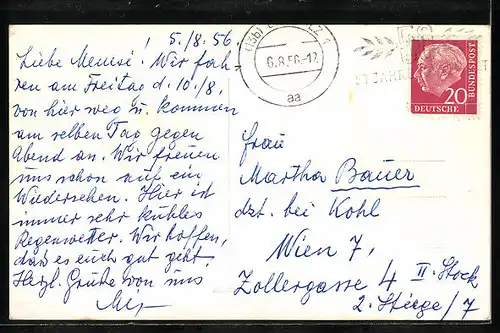 5./8. 56.
Liebe Memisi! Wir fah-
ren am Freitag d. 10./8.
von hier weg u. kommen
am selben Tag gegen
Abend an. Wir freuen
uns schon auf ein
Wiedersehen. Hier ist
immer sehr kühles
Regenwetter. Wir hoffen,
daß es euch gut geht.
Herzl. Grüße von uns
6.8.56.-17
aa
57 JAHR
DEUTSCHE
BUNDESPOST
20
Frau
Martha Bauer
dzt. bei Kohl
Wien 7,
Zollergasse 4 II. Stock
2. Stiege/7